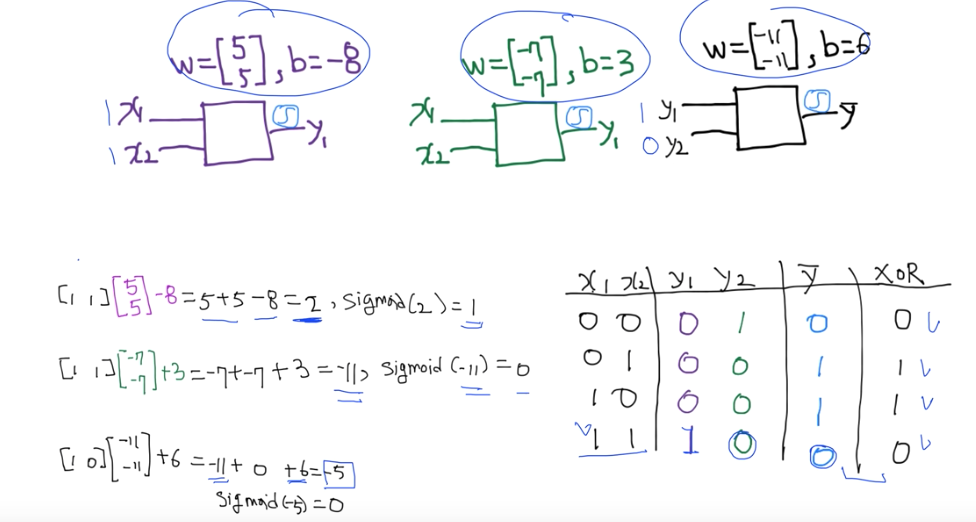 w=[5 5], b=-8
w=[-7 -7], b=3
w=[-11 -11], b=6
1 x1 S y1
1 x2
x1 S y1
x2
1 y1 S ȳ
0 y2
[1 1][5 5]-8=5+5-8=2, Sigmoid(2)=1
[1 1][-7 -7]+3=-7+-7+3=-11, Sigmoid(-11)=0
[1 0][-11 -11]+6=-11+0+6=-5
Sigmoid(-5)=0
x1 x2 y1 y2 ȳ XOR
0 0 0 1 0 0
0 1 0 0 1 1
1 0 0 0 1 1
1 1 1 0 0 0